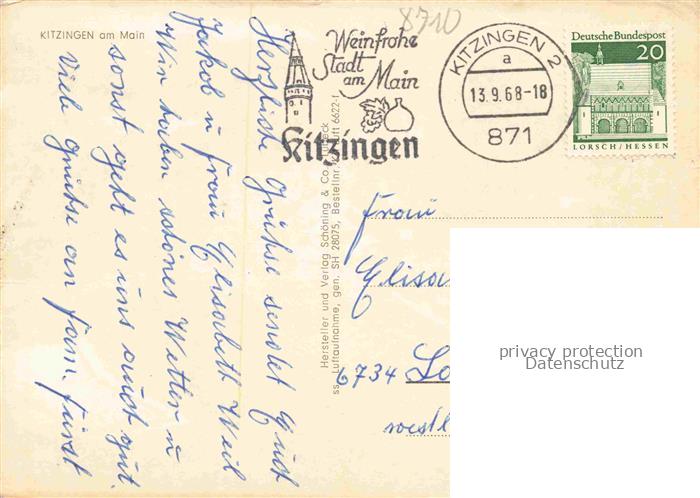 KITZINGEN am Main
8710
Weinfrohe
Stadt
am Main
Kitzingen
KITZINGEN 2
a
13.9.68-18
871
Deutsche Bundespost
20
LORSCH/HESSEN
Herzliche Grüße sendet Euch
Jakob u Frau Elisabeth Weil
Wir haben schönes Wetter u
sonst geht es uns auch gut.
Viele Grüße an Fam. Fürst
Hersteller und Verlag Schöning & Co., Lübeck
ss. Luftaufnahme, gen. SH 28075, Bestellnr. Luft 6622-1
Frau
Elisa
6734 Lo
westl
privacy protection
Datenschutz